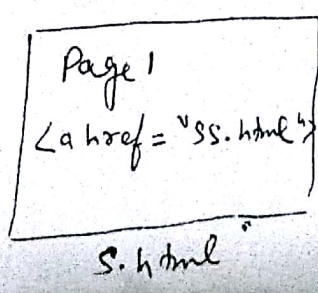 Page 1
<a href="ss.html">
s.html